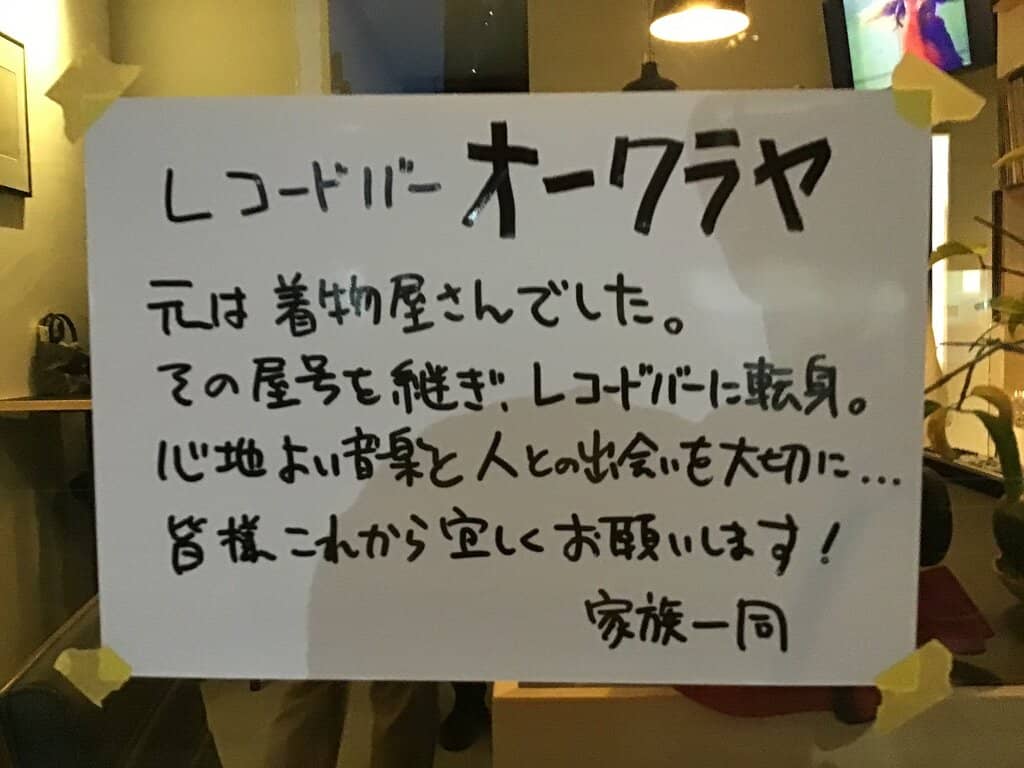 レコードバー オークラヤ
元は着物屋さんでした。
その屋号を継ぎ、レコードバーに転身。
心地よい音楽と人との出会いを大切に...
皆様これから宜しくお願いします!
家族一同